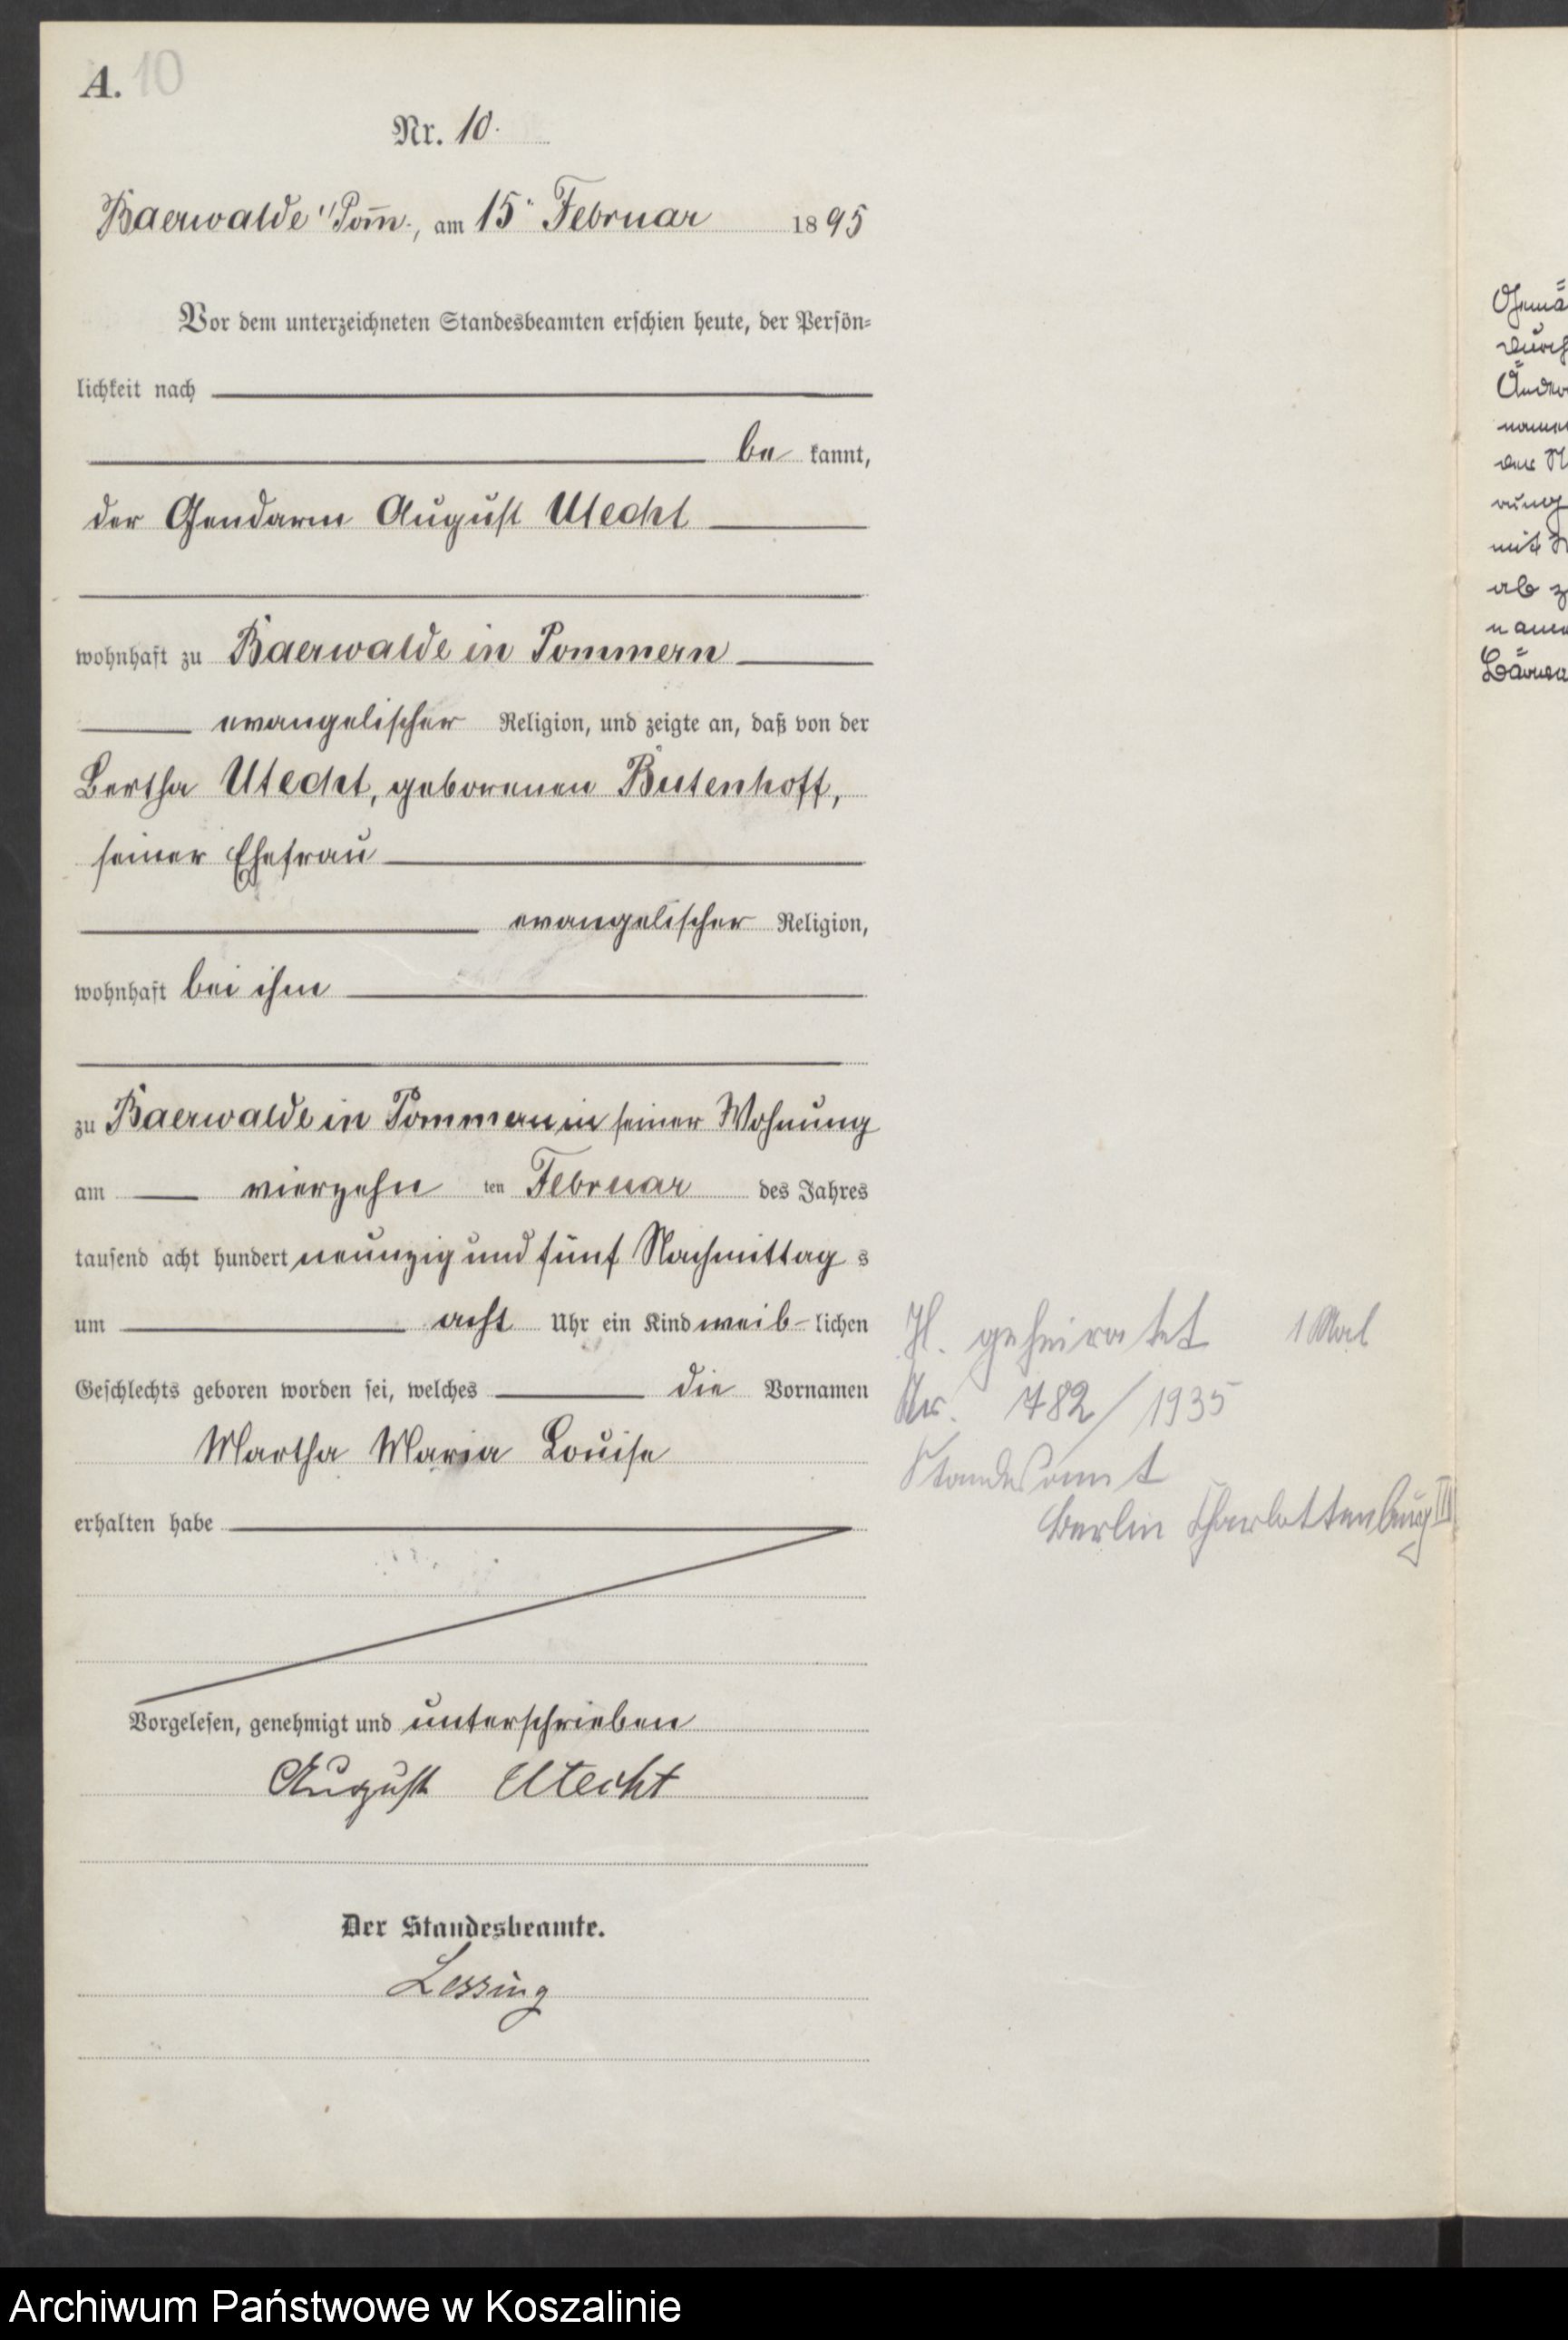 A. 10
Nr. 10.
Baerwalde i/Pom̄., am 15. Februar 1895
Vor dem unterzeichneten Standesbeamten erschien heute, der Persön-
lichkeit nach
be kannt,
der Gendarm August Utecht
wohnhaft zu Baerwalde in Pommern
evangelischer Religion, und zeigte an, daß von der
Bertha Utecht, geborenen Butenhoff,
seiner Ehefrau
evangelischer Religion,
wohnhaft bei ihm
zu Baerwalde in Pommern in seiner Wohnung
am vierzehn ten Februar des Jahres
tausend acht hundert neunzig und fünf Nachmittag s
um acht Uhr ein Kind weib-lichen
Geschlechts geboren worden sei, welches die Vornamen
Martha Maria Louise
erhalten habe
Vorgelesen, genehmigt und unterschrieben
August Utecht
Der Standesbeamte.
Lessing
geheiratet 1 Mal
Nr. 782/1935
Standesamt
Berlin Charlottenburg III
Archiwum Państwowe w Koszalinie